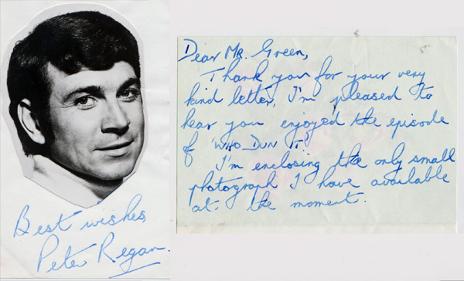 Best wishes
Peter Regan.
Dear Mr. Green,
Thank you for your very
kind letter, I'm pleased to
hear you enjoyed the episode
of WHO DUN IT!
I'm enclosing the only small
photograph I have available
at the moment.